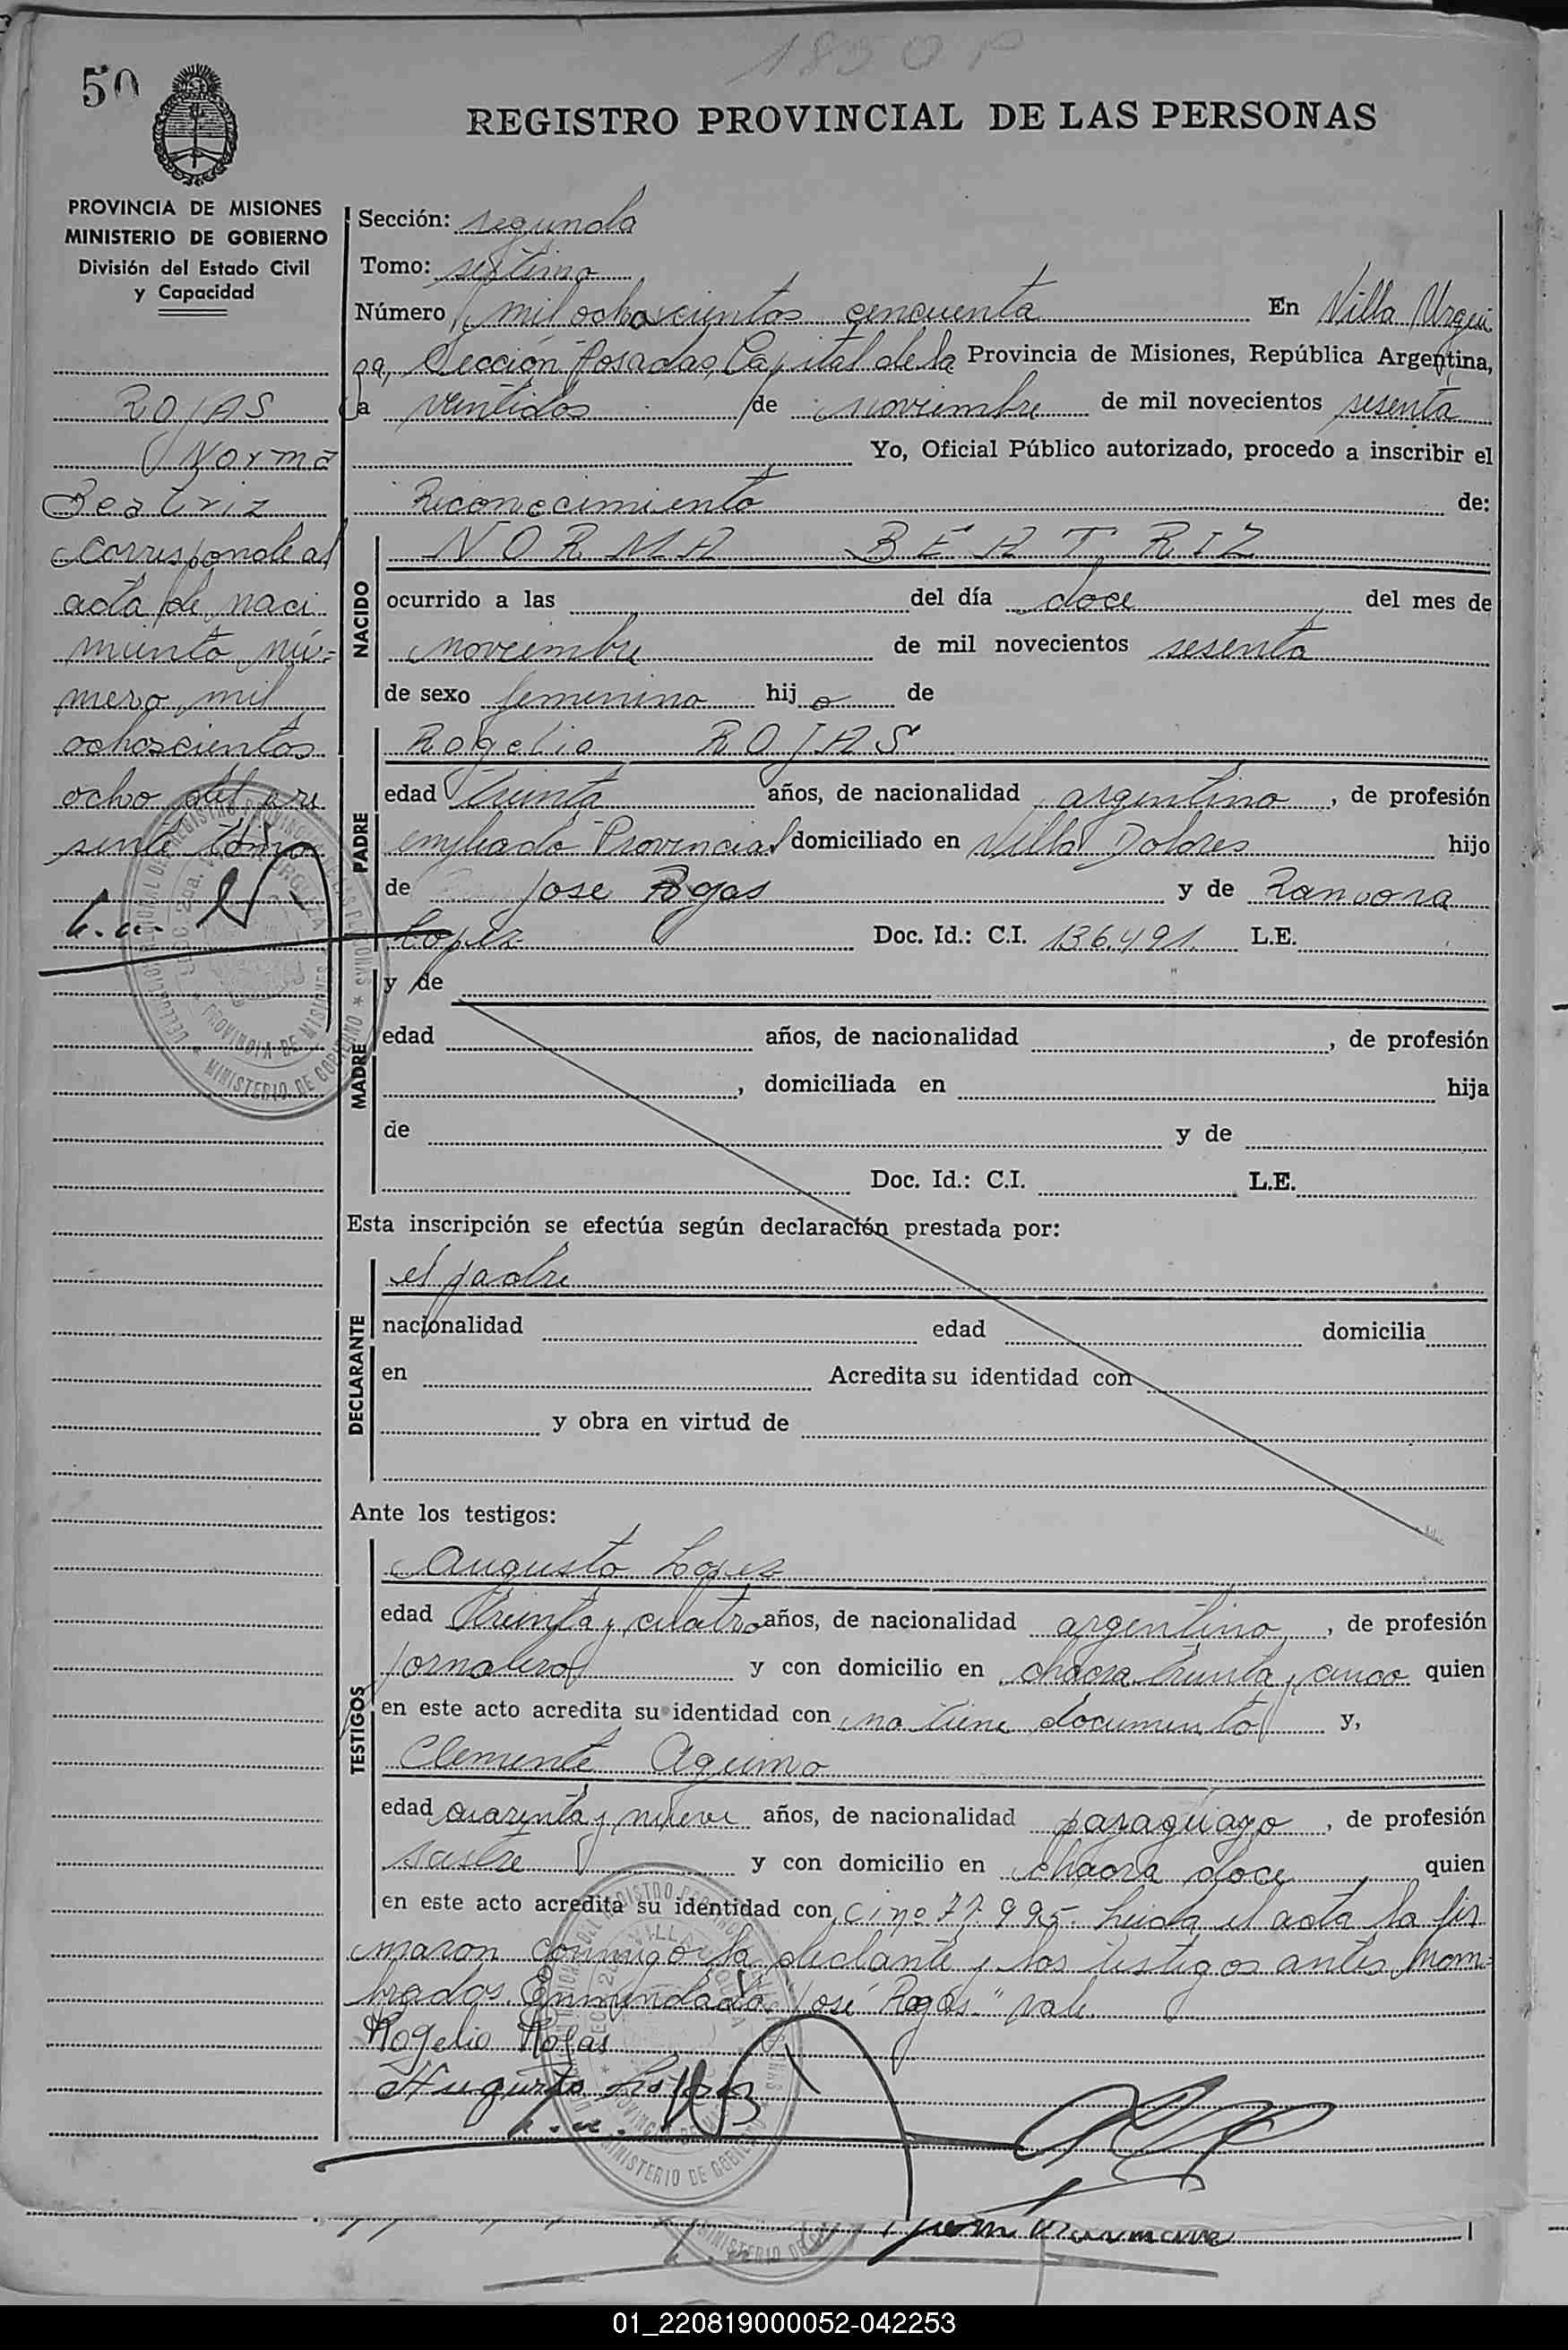 1850 P
50
REGISTRO PROVINCIAL DE LAS PERSONAS
PROVINCIA DE MISIONES
MINISTERIO DE GOBIERNO
División del Estado Civil
y Capacidad
ROJAS
Norma
Beatriz
corresponde al
acta de naci
miento nú-
mero mil
ochoscientos
ocho del pre
sente tomo
Sección: segunda
Tomo: septimo
Número mil ochoscientos cincuenta En Villa Urqui
za, Sección Posadas, Capital de la Provincia de Misiones, República Argentina,
a ventidos de noviembre de mil novecientos sesenta
Yo, Oficial Público autorizado, procedo a inscribir el
Reconocimiento de:
NORMA BEATRIZ
NACIDO
ocurrido a las del día doce del mes de
noviembre de mil novecientos sesenta
de sexo femenino hij a de
PADRE
Rogelio ROJAS
edad treinta años, de nacionalidad argentino, de profesión
empleado Provincial domiciliado en Villa Dolores hijo
de Jose Rojas y de Ramona
Lopez Doc. Id.: C.I. 136.491 L.E.
MADRE
y de
edad años, de nacionalidad , de profesión
, domiciliada en hija
de y de
Doc. Id.: C.I. L.E.
Esta inscripción se efectúa según declaración prestada por:
DECLARANTE
el padre
nacionalidad edad domicilia
en Acredita su identidad con
y obra en virtud de
Ante los testigos:
TESTIGOS
Augusto Lopez
edad treinta y cuatro años, de nacionalidad argentino, de profesión
jornalero y con domicilio en chacra treinta y cinco quien
en este acto acredita su identidad con no tiene documento y,
Clemente Aquino
edad cuarenta y nueve años, de nacionalidad paraguayo, de profesión
sastre y con domicilio en chacra doce quien
en este acto acredita su identidad con C.I. nº 77.995. Leida el acta la fir
maron conmigo la declante y los testigos antes nom-
brados. Enmendado "José Rojas" vale.
Rogelio Rojas
Augusto Lopez
01_220819000052-042253